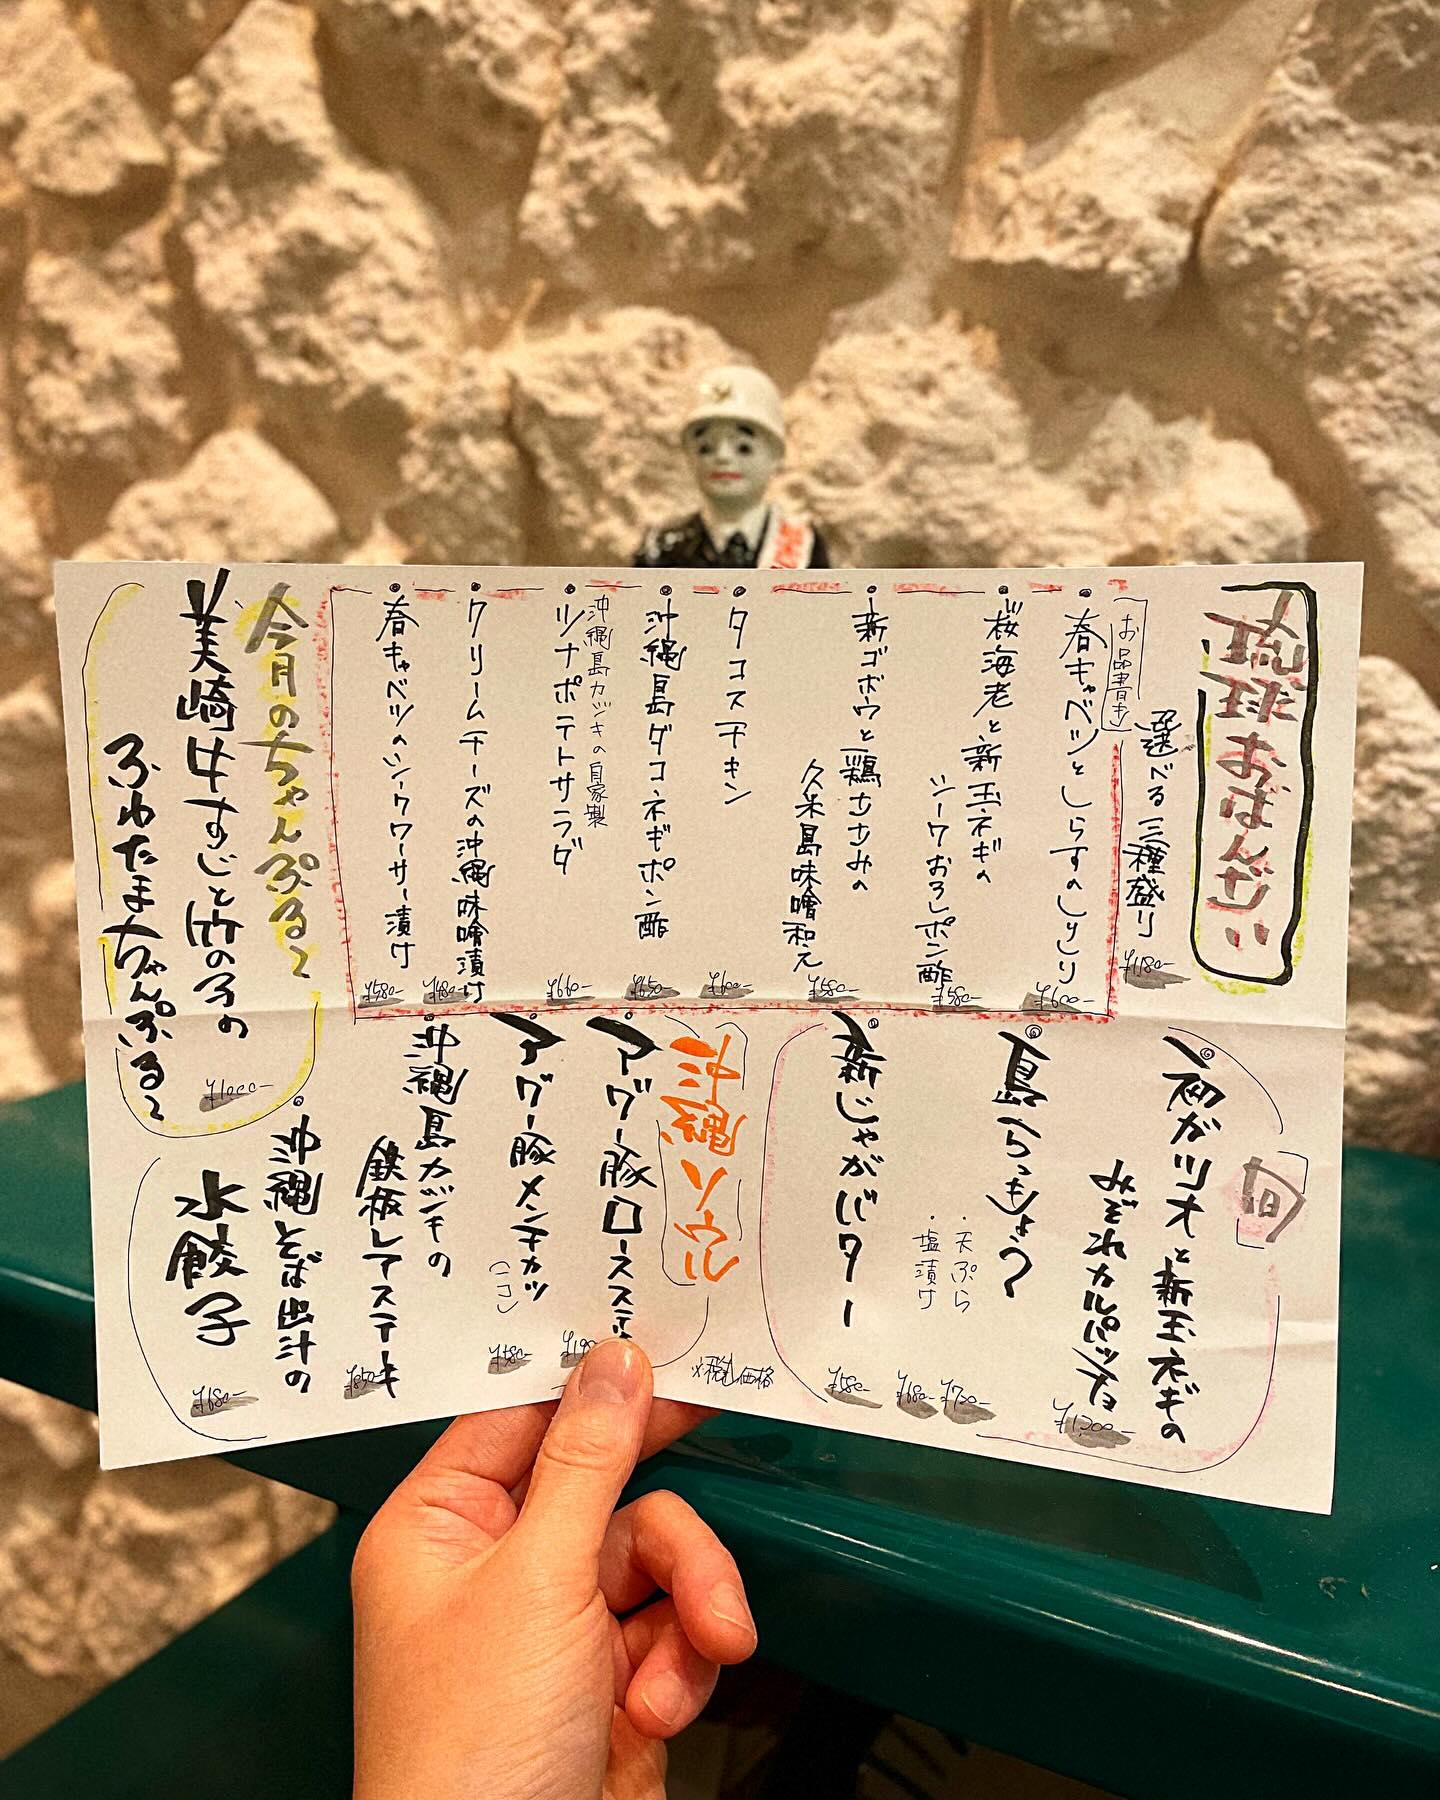 琉球おばんざい
お品書き
選べる三種盛り
¥1,180-
春キャベツとしらすのしりしり
¥600-
桜海老と新玉ネギの
シークワおろしポン酢
¥580-
新ゴボウと鶏ささみの
久米島味噌和え
¥580-
タコスチキン
¥600-
沖縄島ダコネギポン酢
¥650-
沖縄島カツキの自家製
ツナポテトサラダ
¥660-
クリームチーズの沖縄味噌漬け
¥480-
春キャベツのシークワーサー漬け
¥380-
今月のちゃんぷるー
美崎牛すじと竹の子の
ふわたまちゃんぷるー
¥1000-
旬
初ガツオと新玉ネギの
みぞれカルパッチョ
¥1,200-
島らっきょう
・天ぷら
¥700-
・塩漬け
¥680-
新じゃがバター
¥580-
※税込価格
アグー豚ロースステ
アグー豚メンチカツ
(一コ)
¥580-
沖縄島カジキの
鉄板レアステーキ
¥850-
沖縄そば出汁の
水餃子
¥680-